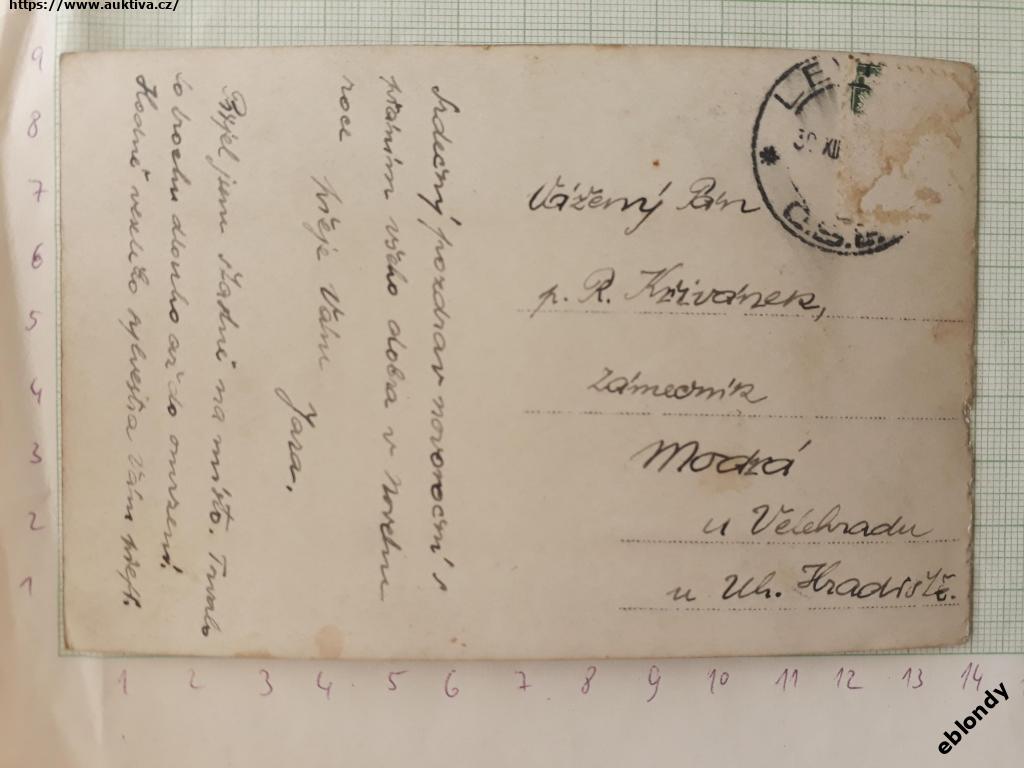 https://www.auktiva.cz/
Srdečný pozdrav novoroční s
přáním všeho dobra v novém
roce
přeje Vám
Jara.
Přijel jsem šťastně na místo. Trvalo
to trochu dlouho až do omrzení.
Hodně veselého sylvestra Vám přeji.
LE
30 XII
Č.S.R.
Vážený Pán
p. R. Křivánek,
zámečník
Modrá
u Velehradu
u Uh. Hradiště.
9
8
7
6
5
4
3
2
1
1 2 3 4 5 6 7 8 9 10 11 12 13 14
eblondy